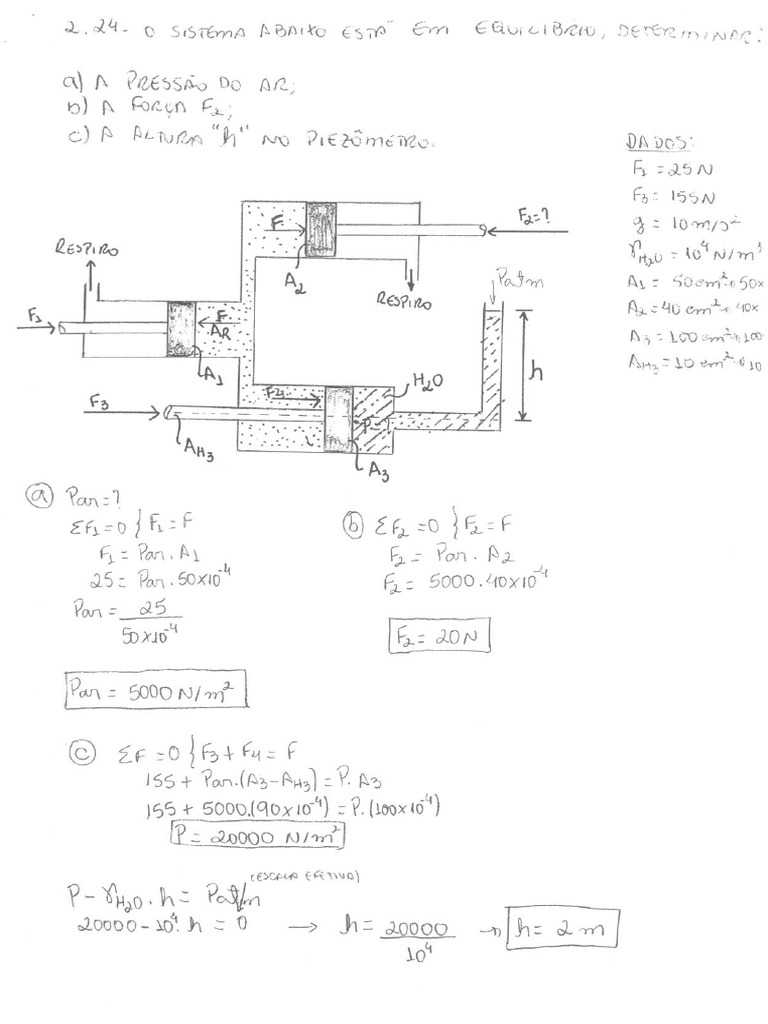 2.24- O SISTEMA ABAIXO ESTÁ EM EQUILÍBRIO, DETERMINAR:
a) A PRESSÃO DO AR;
b) A FORÇA F₂;
c) A ALTURA "h" NO PIEZÔMETRO.
DADOS:
F₁ = 25N
F₃ = 155N
g = 10m/s²
γH₂O = 10⁴ N/m³
A₁ = 50cm² → 50x
A₂ = 40 cm² → 40x
A₃ = 100cm² → 100
AH₃ = 10 cm² → 10
RESPIRO
F
F₂=?
A₂
RESPIRO
Patm
F₁
F
AR
A₁
h
F₄
H₂O
F₃
P
AH₃
A₃
ⓐ Par = ?
ΣF₁ = 0 { F₁ = F
F₁ = Par . A₁
25 = Par . 50x10⁻⁴
Par = 25
50x10⁻⁴
Par = 5000 N/m²
ⓑ ΣF₂ = 0 } F₂ = F
F₂ = Par . A₂
F₂ = 5000.40x10⁻⁴
F₂ = 20N
ⓒ ΣF = 0 { F₃ + F₄ = F
155 + Par.(A₃ - AH₃) = P. A₃
155 + 5000.(90x10⁻⁴) = P.(100x10⁻⁴)
P = 20000 N/m²
(ESCALA EFETIVA)
P - γH₂O . h = Patm
20000 - 10⁴. h = 0 → h = 20000 → h = 2 m
10⁴